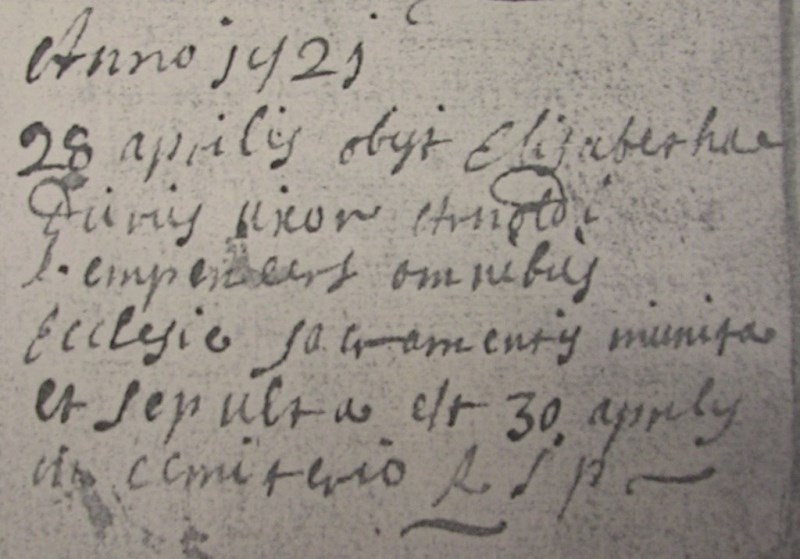 Anno 1721
28 aprilis obijt Elisabetha
uxor Arnoldi
omnibus
Ecclesie sacramentis munita
et sepulta est 30 aprilis
in cemiterio R I P